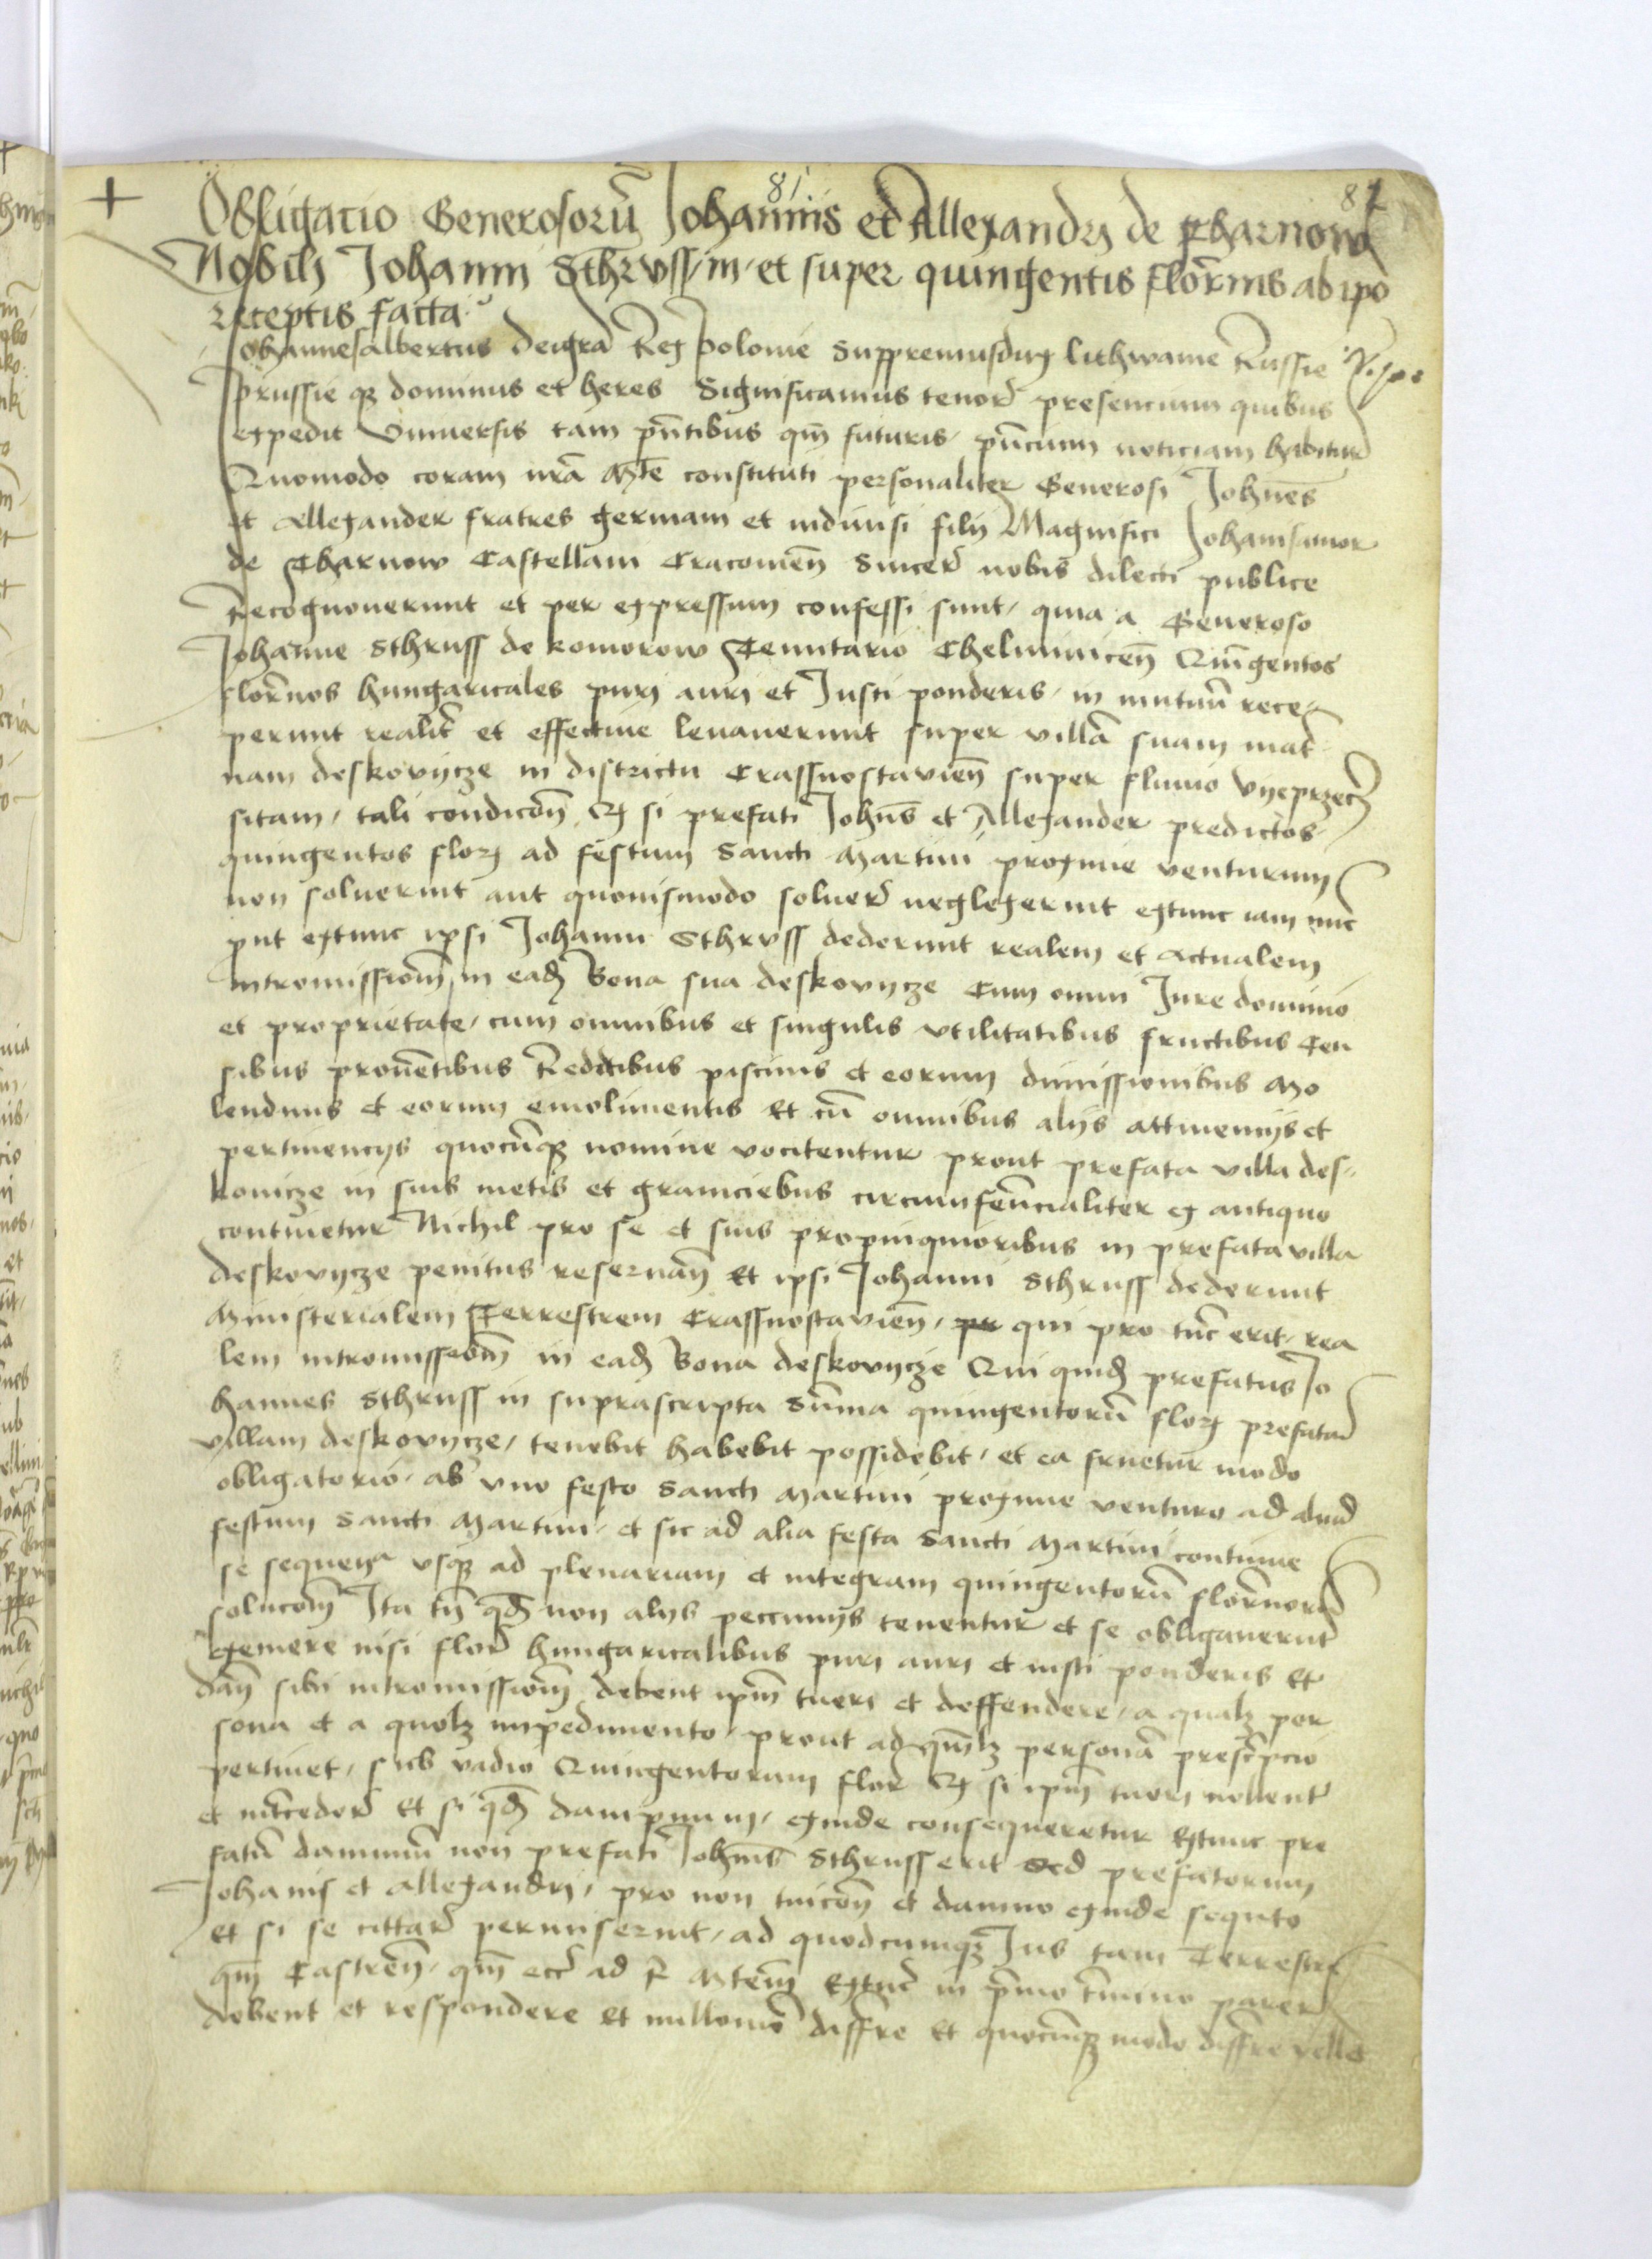 81
82
+
Obligacio Generosorū Johannis et Allexandrj de Tharnow
Nobilj Johanni Sthrvss, in, et super quingentis florēnis ab ip̄o
receptis facta
Johannes albertus dei grā Rex polonie Suppremusdux lithwanie Russie
prussie qz dominus et heres Significamus tenore presencium quibus
expedit Vniuersis tam pn̄tibus qm̄ futuris, pn̄cium noticiam habitur
Quomodo coram nrā Mte constituti personaliter Generosi Johnēs
et Allexander fratres germani et indiuisi filij Magnifici Johanis
de Tharnow Castellani Cracouien̄ Sincere nobis dilecti publice
Recognouerunt et per expressum confessi sunt, quia a Generoso
Johanne Sthruss de komorow Tenutario Chelmiicen̄ Quīgentos
florēnos hungaricales purj aurj et Justi ponderis, in mutuū rece-
perunt realitr̄ et effectiue leuauerunt super villā suam mater-
nam deskovycze in districtu Crassnostavien̄ super fluuio Vyeprzecz
sitam, tali condicōn̄ Qz si prefati Johns̄ et Allexander predictos
quingentos florz ad festum Sancti Martini proxime venturum
non soluerint aut quouismodo soluere neglegerint extunc iam nūc
put extunc ipsi Johanni Sthrvss dederunt realem et actualem
intromissiom̄ in eadz Bona sua deskovycze Cum omni Jure dominio
et proprietate, cum omnibus et singulis vtilitatibus fructibus Cen
sibus prouētibus Redditibus piscinis et eorum dimissionibus Mo
lendinis et eorum emolimentis Et cū omnibus alijs attinencijs et
pertinencijs quocūqz nomine vocitentur prout prefata villa des-
kouicze in suis metis et graniciebus circumferēncialiter ex antiquo
continetur Nichil pro se et suis propinquioribus in prefata villa
deskovycze penitus reseruan̄ Et ipsi Johanni Sthruss dederunt
Ministerialem Terrestrem Crassnostavien̄, qui pro tūc erit, rea
lem intromissiom̄ in eadz Bona deskovycze Qui quidz prefatus Jo
hannes Sthruss in suprascripta Sūma quingentorū florz prefatam
villam deskovycze, tenebit habebit possidebit, et ea fruetur modo
obligatorio, ab vno festo Sancti Martini proxime venturo ad aliud
festum Sancti Martini, et sic ad alia festa Sancti Martini continue
se sequen̄ vsqz ad plenariam et integram quingentorū florēnorū
solucōm̄ Ita tn̄ qdz non alijs peccunijs tenentur et se obligauerūt
exemere nisi flor hungaricalibus puri auri et iusti ponderis Et
dan̄ sibi intromissiom̄ debent ipm̄ tueri et deffendere, a qualz per
sona et a quolz impedimento, prout ad qm̄lz personā prescrīpcio
pertinet, sub vadio Quingentorum flor Qz si ipm̄ tueri nollent
et intcedere Et si qdz dampnum, exinde consequeretur Extunc pre
fatū damnū non prefati Johnis Sthruss erit Sed prefatorum
Johanis et Allexandri, pro non tuicōn̄ et damno exinde sequto
Et si se cittare permiserint, ad quodcumqz Jus tam Terrestre
qm̄ Castren̄, qm̄ ecc̄ ad R Mtem̄ Extūc in p̄mo tm̄ino parere
debent et respondere Et nullomō diffre Et quocūqz modo diffre velle